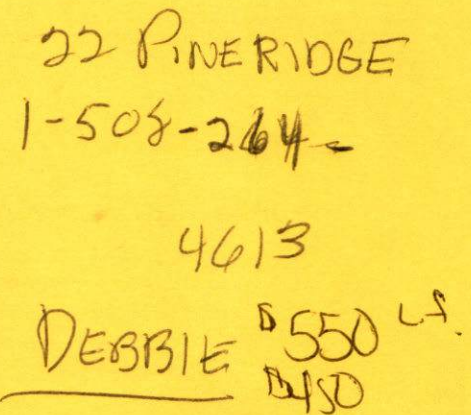 22 PINERIDGE
1-508-264-
4613
DEBBIE $550 LF.
$450